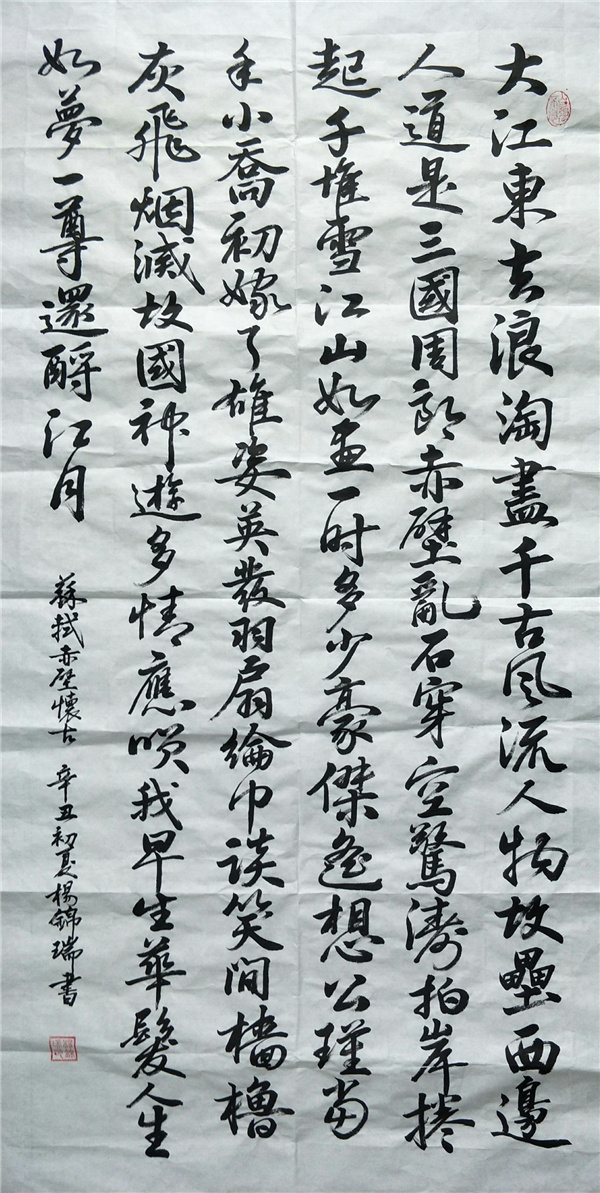 大江東去浪淘盡千古風流人物故壘西邊
人道是三國周郎赤壁亂石穿空驚濤拍岸捲
起千堆雪江山如畫一时多少豪傑遙想公瑾當
年小喬初嫁了雄姿英發羽扇綸巾談笑間檣櫓
灰飛烟滅故國神遊多情應笑我早生華髮人生
如夢一尊還酹江月
蘇軾赤壁懷古 辛丑初夏楊錦瑞書